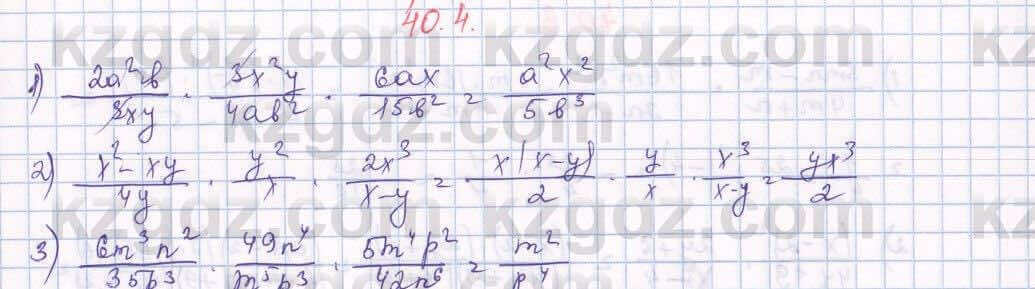 40.4.
1) 2a²b/3xy · 3x²y/4ab² · 6ax/15b² = a²x²/5b³
2) x²-xy/4y · y²/x · 2x³/x-y = x(x-y)/2 · y/x · x³/x-y = yx³/2
3) 6m³n²/35p³ · 49n⁴/m⁵p³ · 5m⁴p²/42n⁶ = m²/p⁴
kzgdz.com